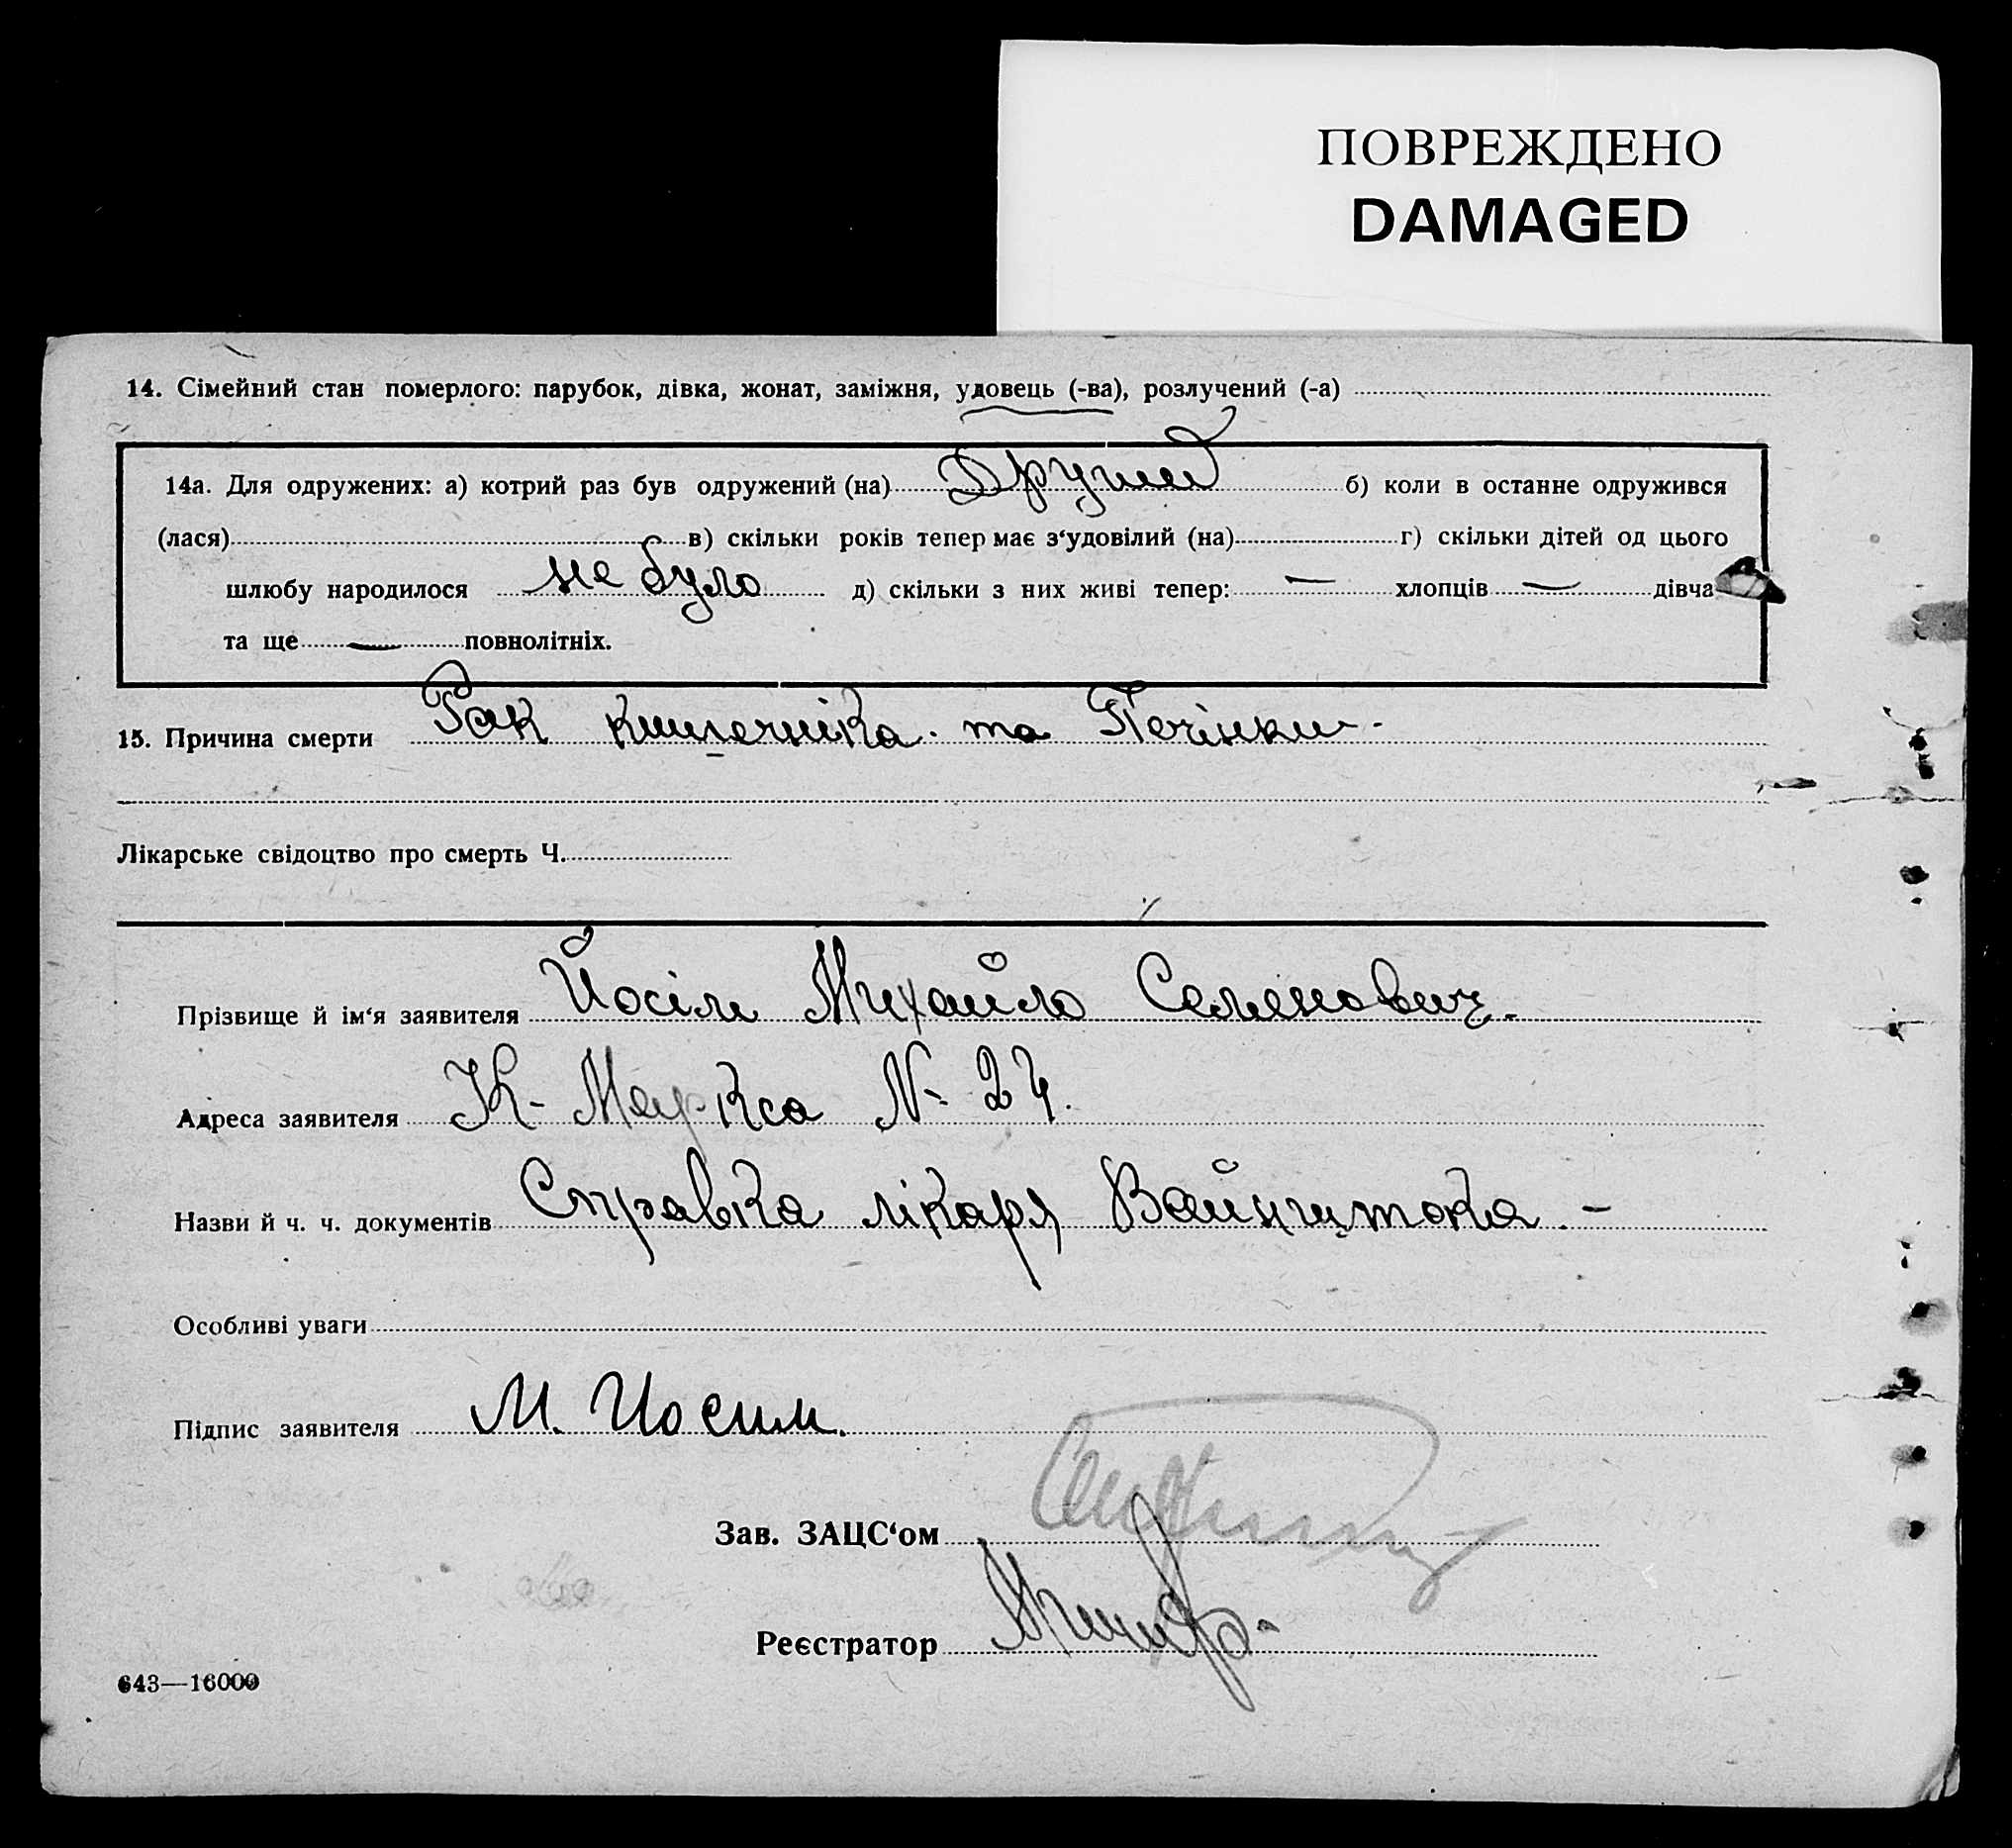 ПОВРЕЖДЕНО
DAMAGED
14. Сімейний стан померлого: парубок, дівка, жонат, заміжня, удовець (-ва), розлучений (-а)
14а. Для одружених: а) котрий раз був одружений (на) Другий б) коли в останнє одружився
(лася) в) скільки років тепер має з‘удовілий (на) г) скільки дітей од цього
шлюбу народилося не було д) скільки з них живі тепер: — хлопців — дівча
та ще — повнолітніх.
15. Причина смерти Рак кишечніка. та Печінки -
Лікарське свідоцтво про смерть Ч.
Прізвище й ім‘я заявителя Йосіли Михайло Семенович.
Адреса заявителя К- Маркса №
Назви й ч. ч. документів Справка лікаря Вайнштока. -
Особливі уваги
Підпис заявителя М. Иосим.
Зав. ЗАЦС‘ом
Реєстратор
643—16000